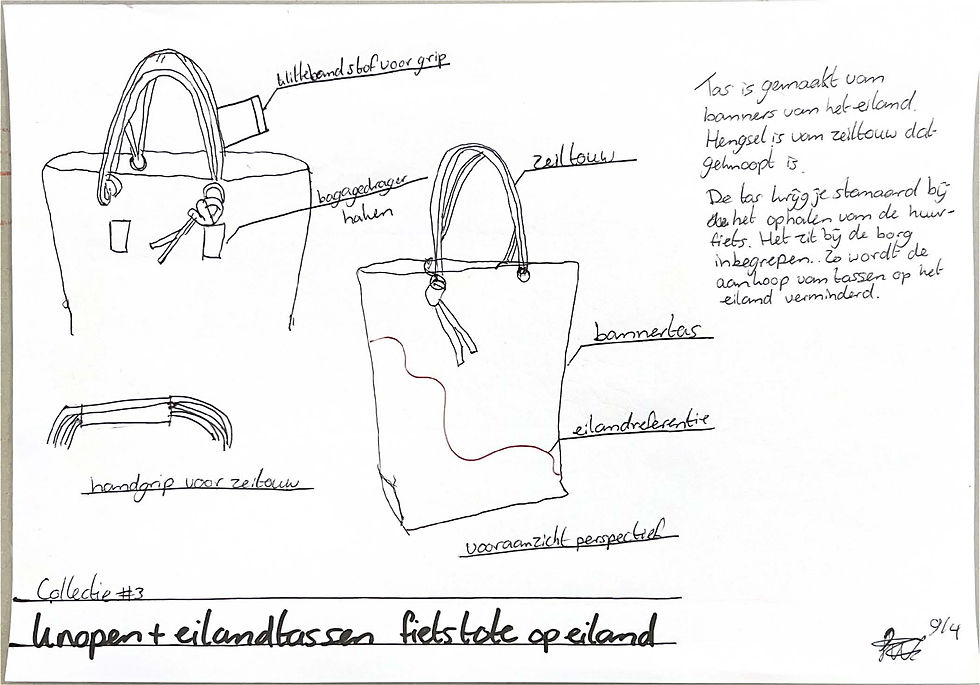 klitteband stof voor grip
bagagedrager
haken
zeiltouw
Tas is gemaakt van
banners van het eiland.
Hengsel is van zeiltouw dat
geknoopt is.
De tas krijg je standaard bij
het ophalen van de huur-
fiets. Het zit bij de borg
inbegrepen. Zo wordt de
aankoop van tassen op het
eiland verminderd.
bannertas
eilandreferentie
handgrip voor zeiltouw
vooraanzicht perspectief
Collectie #3
knopen + eilandtassen fietstote op eiland
9/4